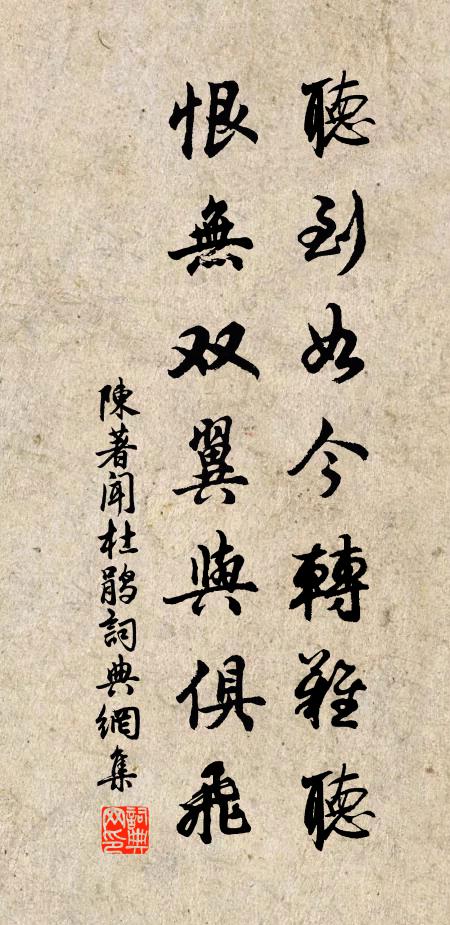 聽到如今轉難聽
恨無双翼與俱飛
陳著聞杜鵑詞典網集
詞典网印